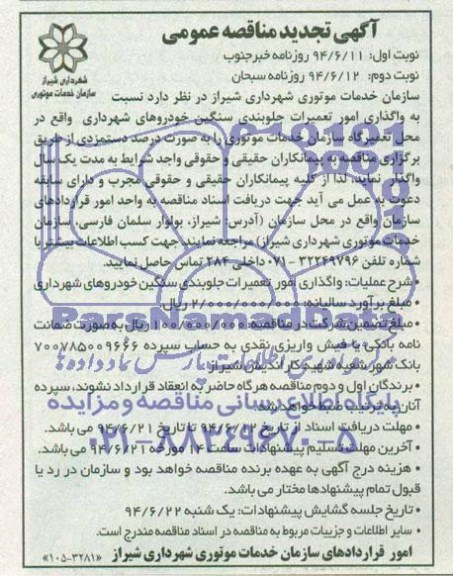 آگهی تجدید مناقصه عمومی
نوبت اول: ۹۴/۶/۱۱ روزنامه خبرجنوب
نوبت دوم: ۹۴/۶/۱۲ روزنامه سبحان
شهرداری شیراز
سازمان خدمات موتوری
سازمان خدمات موتوری شهرداری شیراز در نظر دارد نسبت
به واگذاری امور تعمیرات جلوبندی سنگین خودروهای شهرداری واقع در
محل تعمیرگاه سازمان خدمات موتوری را به صورت درصد دستمزدی از طریق
برگزاری مناقصه به پیمانکاران حقیقی و حقوقی واجد شرایط به مدت یک سال
واگذار نماید. لذا از کلیه پیمانکاران حقیقی و حقوقی مجرب و دارای سابقه
دعوت به عمل می آید جهت دریافت اسناد مناقصه به واحد امور قراردادهای
سازمان واقع در محل سازمان (آدرس: شیراز، بولوار سلمان فارسی، سازمان
خدمات موتوری شهرداری شیراز) مراجعه نمایند. جهت کسب اطلاعات بیشتر با
شماره تلفن ۳۲۲۴۹۷۹۶-۰۷۱ داخلی ۲۸۴ تماس حاصل نمایید.
• شرح عملیات: واگذاری امور تعمیرات جلوبندی سنگین خودروهای شهرداری
• مبلغ برآورد سالیانه: ۲/۰۰۰/۰۰۰/۰۰۰ ریال
• مبلغ تضمین شرکت در مناقصه: ۱۰۰/۰۰۰/۰۰۰ ریال به صورت ضمانت
نامه بانکی یا فیش واریزی نقدی به حساب سپرده ۷۰۰۷۸۵۰۰۹۶۶۶
بانک شهر شعبه شهید کاراندیش شیراز
• برندگان اول و دوم مناقصه هرگاه حاضر به انعقاد قرارداد نشوند، سپرده
آنان به ترتیب ضبط خواهد شد.
• مهلت دریافت اسناد از تاریخ ۹۴/۶/۱۲ تا تاریخ ۹۴/۶/۲۱ می باشد.
• آخرین مهلت تسلیم پیشنهادات ساعت ۱۴ مورخه ۹۴/۶/۲۱ می باشد.
• هزینه درج آگهی به عهده برنده مناقصه خواهد بود و سازمان در رد یا
قبول تمام پیشنهادها مختار می باشد.
• تاریخ جلسه گشایش پیشنهادات: یک شنبه ۹۴/۶/۲۲
• سایر اطلاعات و جزییات مربوط به مناقصه در اسناد مناقصه مندرج است.
امور قراردادهای سازمان خدمات موتوری شهرداری شیراز «۱۰۵-۳۲۸۱»
ParsNamadData
پایگاه اطلاع رسانی مناقصه و مزایده
۰۲۱-۸۸۳۴۹۶۷۰-۵